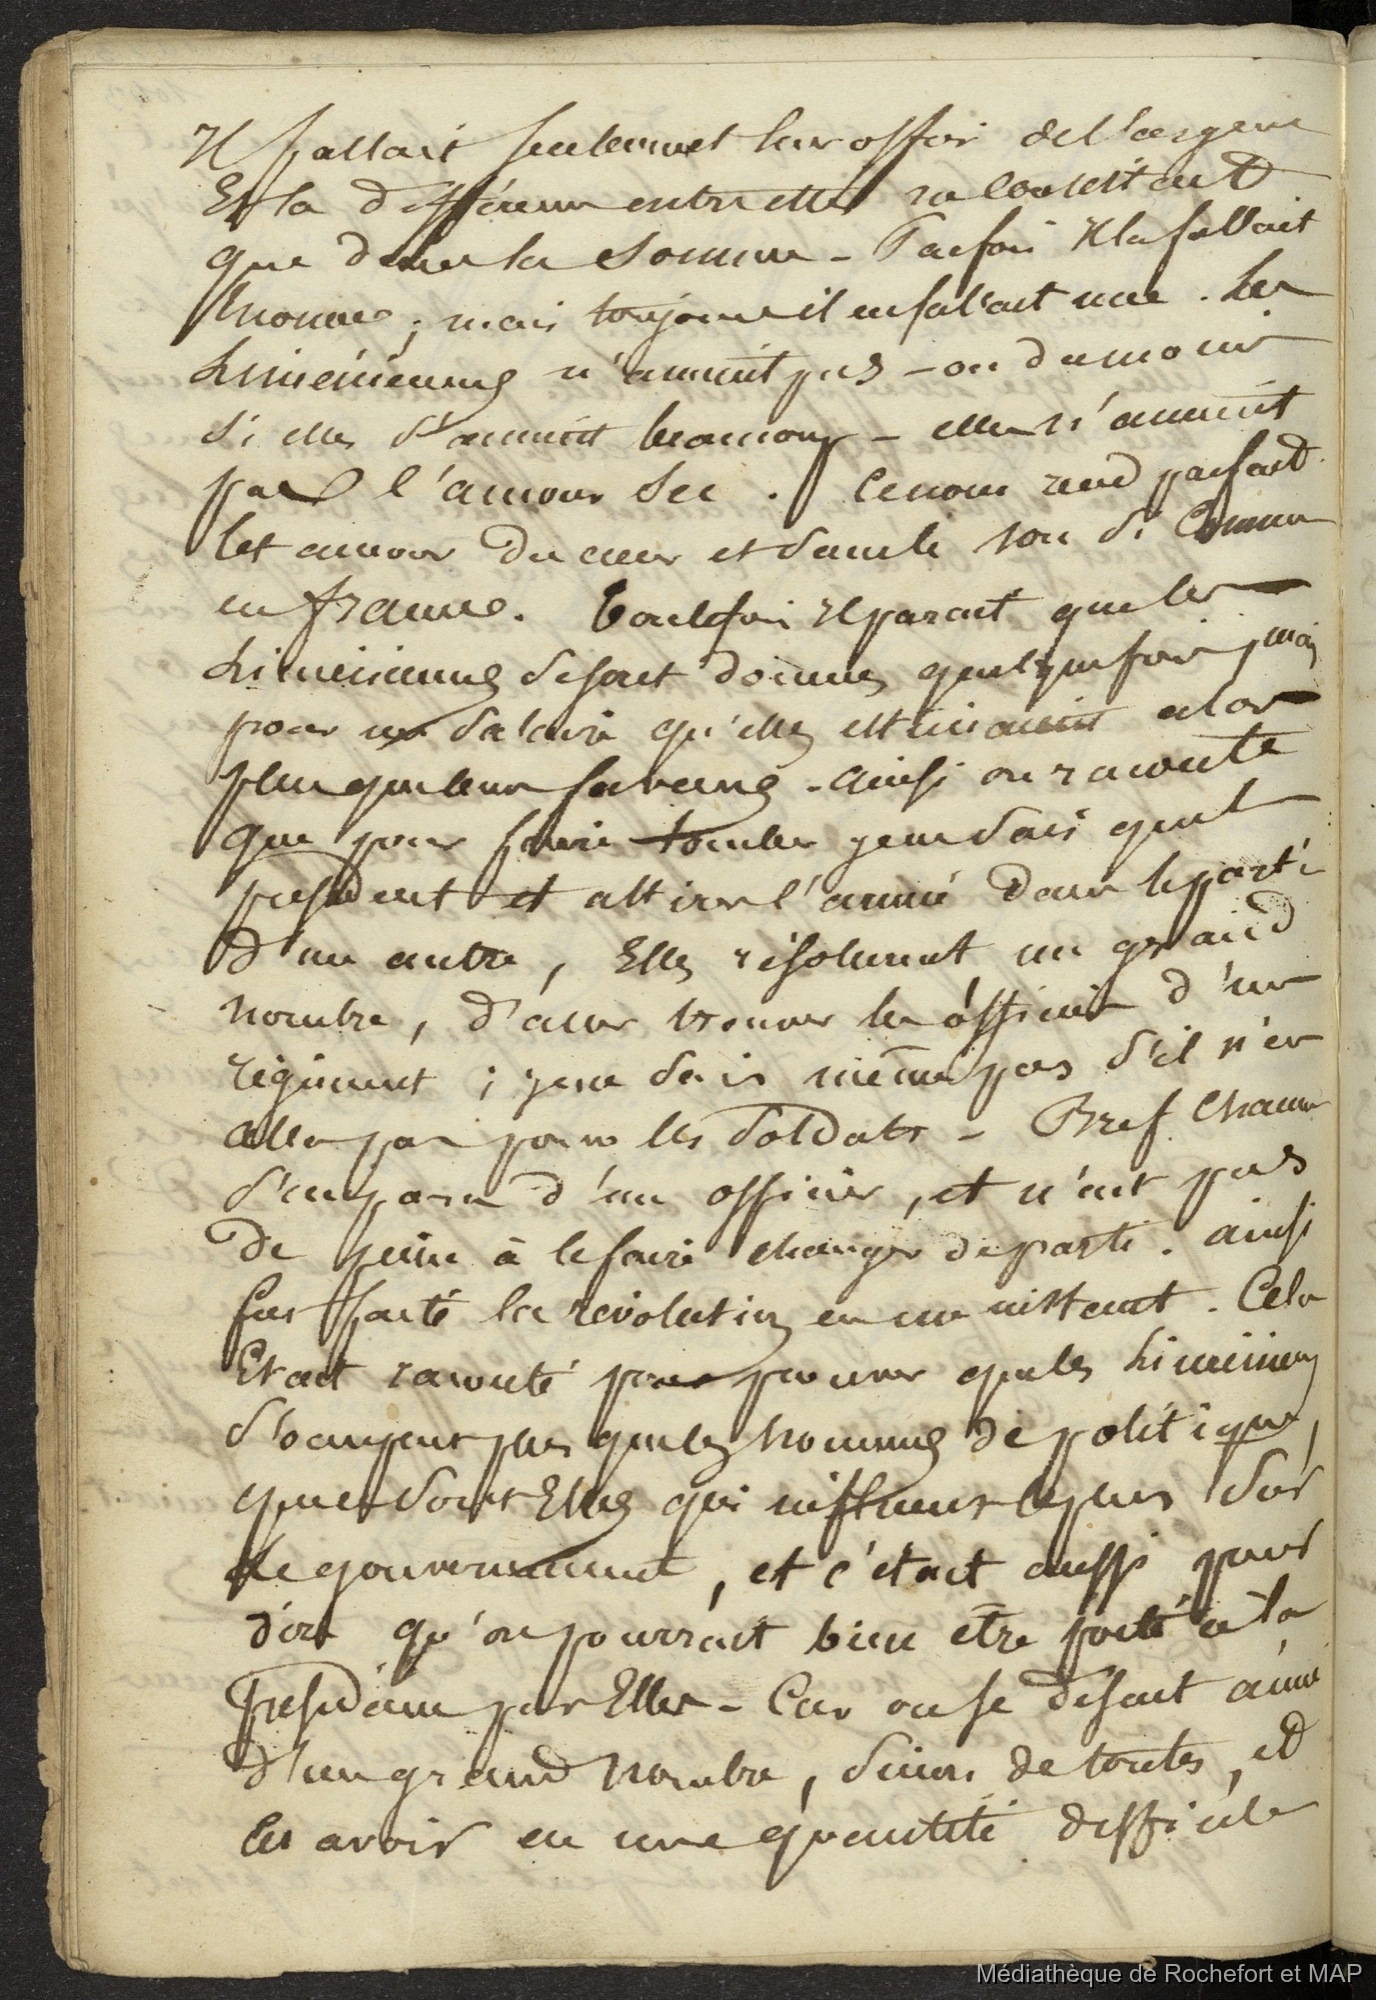 Il fallait seulement leur offrir de l'argent
Et la différence entre elles ne consistait
que dans la somme - Parfois il la fallait
énorme ; mais toujours il en fallait une . Les
Liméniennes n'aiment pas - ou du moins
si elles s'aiment beaucoup - elles n'aiment
pas l'amour sec . Ce nom rend parfait
les amours du cœur et sans le sou si commun
en france. Toutefois il parait que les
Liméniennes se sont données quelquefois mais
pour un salaire qu'elles estimaient alors
plus que leurs faveurs . ainsi on raconte
que pour faire tomber je ne sais quel
président et attirer l'armée dans le parti
d'un autre , Elles résolurent un grand
nombre , d'aller trouver les officiers d'un
régiment ; je ne sais même pas s'il n'en
alla pas pour les soldats - Bref Chacune
s'empara d'un officier , et n'eut pas
de peine à le faire changer de parti . ainsi
fut faite la révolution en un instant . Cela
Etait raconté pour prouver que les Liméniennes
s'occupent plus que les hommes de politique ,
que ce sont Elles qui influent le plus sur
le gouvernement , et c'était aussi pour
dire qu'on pourrait bien être porté à la
Présidence par Elles - Car on se disait aimé
d'un grand nombre , sinon de toutes , et
les avoir eu une quantité difficile
Médiathèque de Rochefort et MAP